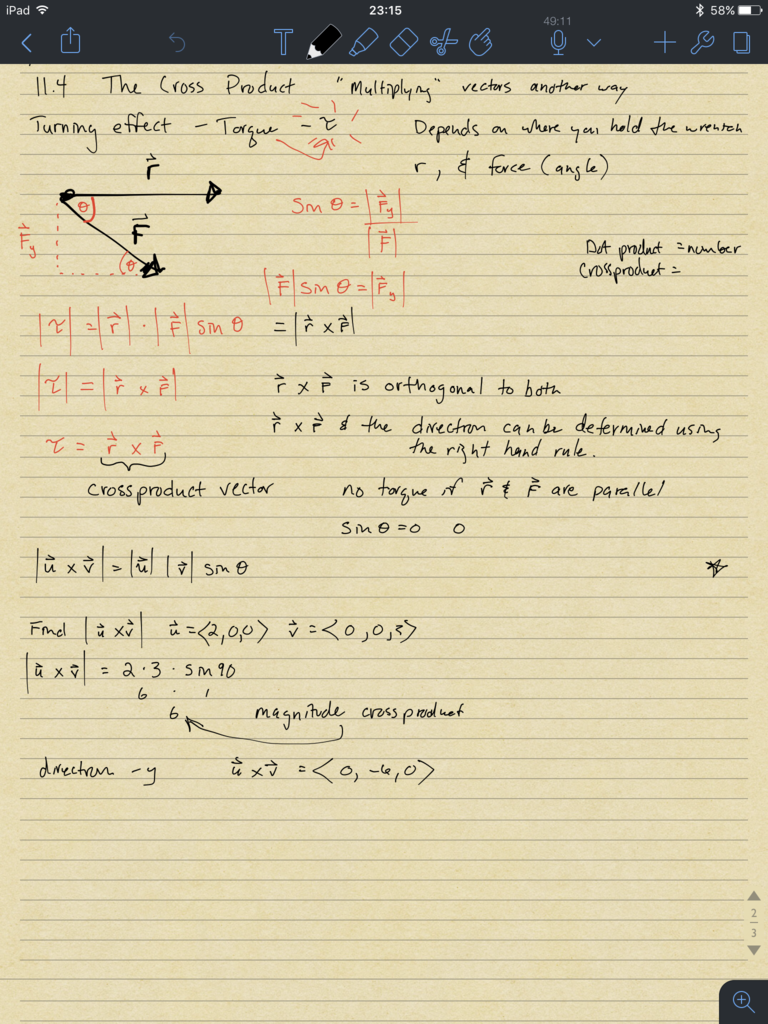 iPad 23:15 58%
49:11
T
11.4 The Cross Product "Multiplying" vectors another way
Turning effect - Torque - τ
Depends on where you hold the wrench
r, & force (angle)
r⃗
θ
F⃗
F⃗y
θ
sin θ = |F⃗y| / |F⃗|
Dot product = number
Crossproduct =
|F⃗| sin θ = |F⃗y|
|τ| = |r⃗| · |F⃗| sin θ = |r⃗ x F⃗|
|τ| = |r⃗ x F⃗| r⃗ x F⃗ is orthogonal to both
r⃗ x F⃗ & the direction can be determined using
the right hand rule.
τ = r⃗ x F⃗
crossproduct vector no torque if r⃗ & F⃗ are parallel
sin θ = 0 0
|u⃗ x v⃗| = |u⃗| |v⃗| sin θ
Find |u⃗ x v⃗| u⃗ = <2,0,0> v⃗ = <0,0,3>
|u⃗ x v⃗| = 2 · 3 · sin 90
6 · 1
6 magnitude crossproduct
direction -y u⃗ x v⃗ = <0, -6, 0>
2
3